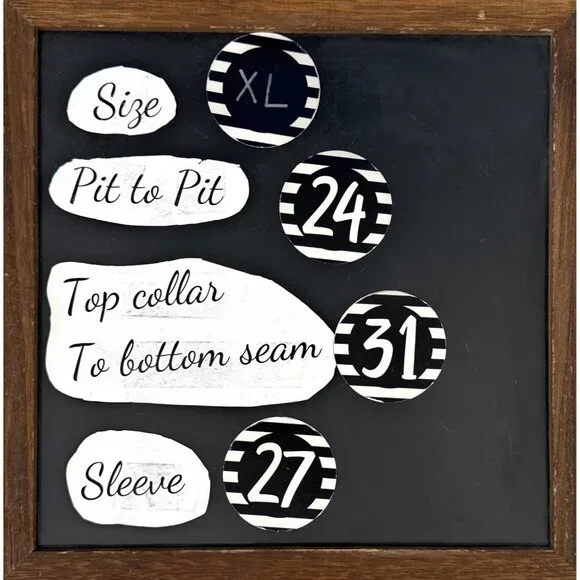 Size XL
Pit to Pit 24
Top collar
To bottom seam 31
Sleeve 27